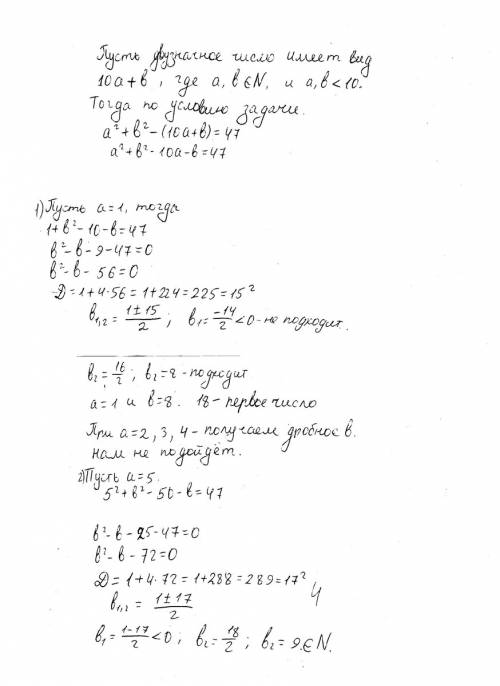 Пусть двузначное число имеет вид
10a+b, где a, b ∈ N, и a, b < 10.
Тогда по условию задачи.
a²+b²-(10a+b)=47
a²+b²-10a-b=47
1) Пусть a=1, тогда
1+b²-10-b=47
b²-b-9-47=0
b²-b-56=0
D=1+4·56=1+224=225=15²
b₁,₂ = (1±15)/2 ; b₁ = -14/2 <0 - не подходит.
b₂ = 16/2 ; b₂=8 - подходит
a=1 и b=8. 18 - первое число
При a=2, 3, 4 - получаем дробное b.
Нам не подойдёт.
2) Пусть a=5.
5²+b²-50-b=47
b²-b-25-47=0
b²-b-72=0
D=1+4·72=1+288=289=17²
b₁,₂ = (1±17)/2
b₁ = (1-17)/2 <0 ; b₂ = 18/2 ; b₂ = 9 ∈ N.